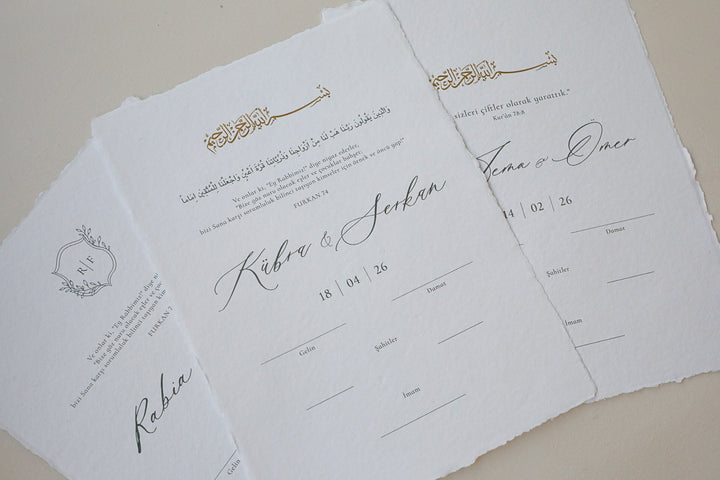 بِسْمِ اللَّهِ الرَّحْمَٰنِ الرَّحِيمِ
وَالَّذِينَ يَقُولُونَ رَبَّنَا هَبْ لَنَا مِنْ أَزْوَاجِنَا وَذُرِّيَّاتِنَا قُرَّةَ أَعْيُنٍ وَاجْعَلْنَا لِلْمُتَّقِينَ إِمَامًا
Ve onlar ki, "Ey Rabbimiz!" diye niyaz ederler,
"Bize göz nuru olacak eşler ve çocuklar bahşet;
bizi Sana karşı sorumluluk bilinci taşıyan kimseler için örnek ve öncü yap!"
FURKAN 74
Kübra & Serkan
18 | 04 | 26
Gelin
Damat
Şahitler
İmam
بِسْمِ اللَّهِ الرَّحْمَٰنِ الرَّحِيمِ
sizleri çiftler olarak yarattık."
Kur'ân 78:8
& Ömer
14 | 02 | 26
Damat
Şahitler
İmam
R | F
Ve onlar ki, "Ey Rabbimiz!" diye
"Bize göz nuru olacak eşler ve
bizi Sana karşı sorumluluk bilinci taşıyan
FURKAN 7
Rabia
Gelin